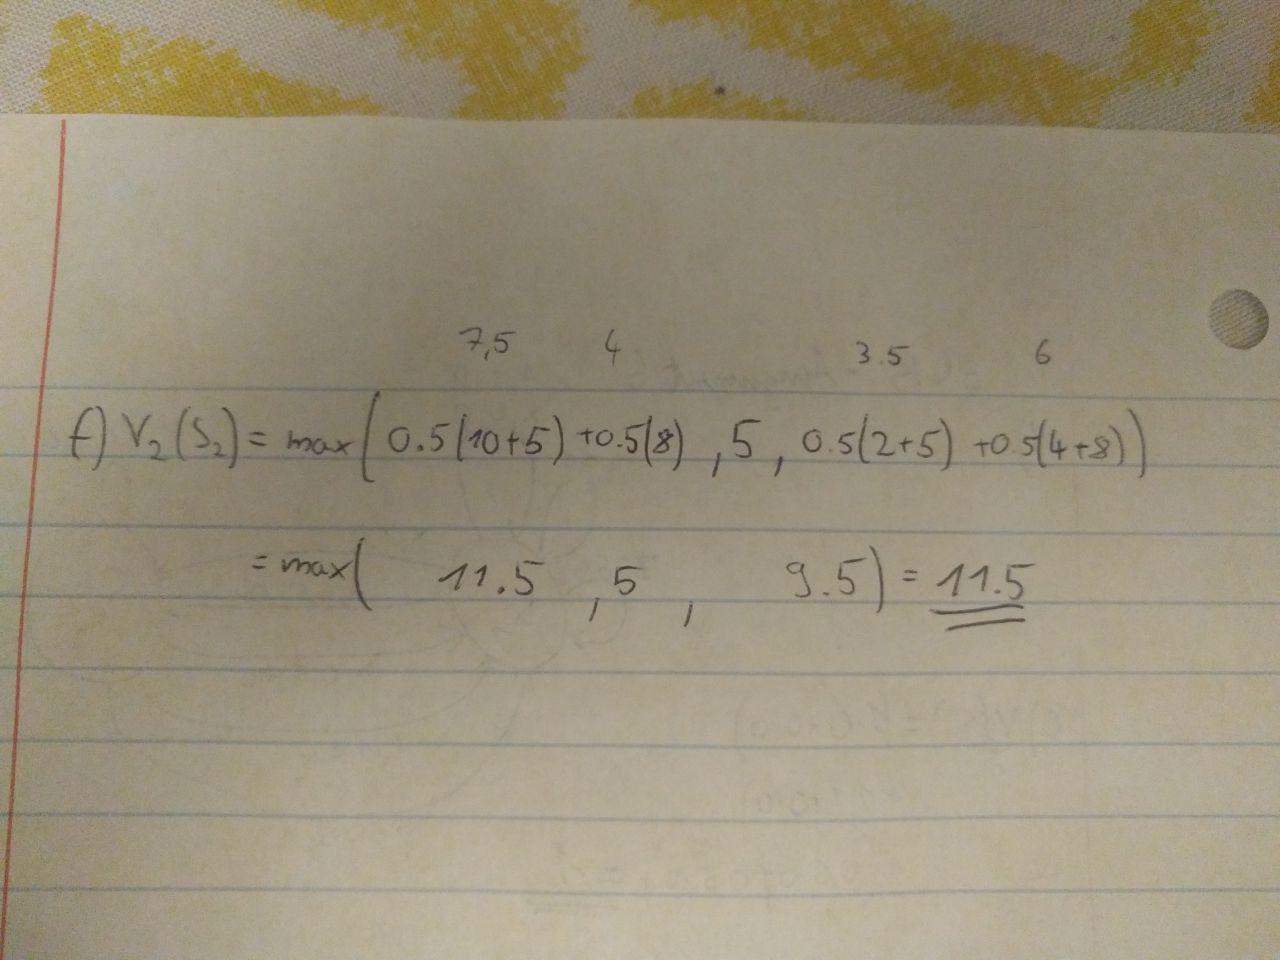 7,5 4 3.5 6
f) V₂(S₂) = max(0.5(10+5) +0.5(8), 5, 0.5(2+5) +0.5(4+8))
= max( 11.5 , 5 , 9.5) = 11.5